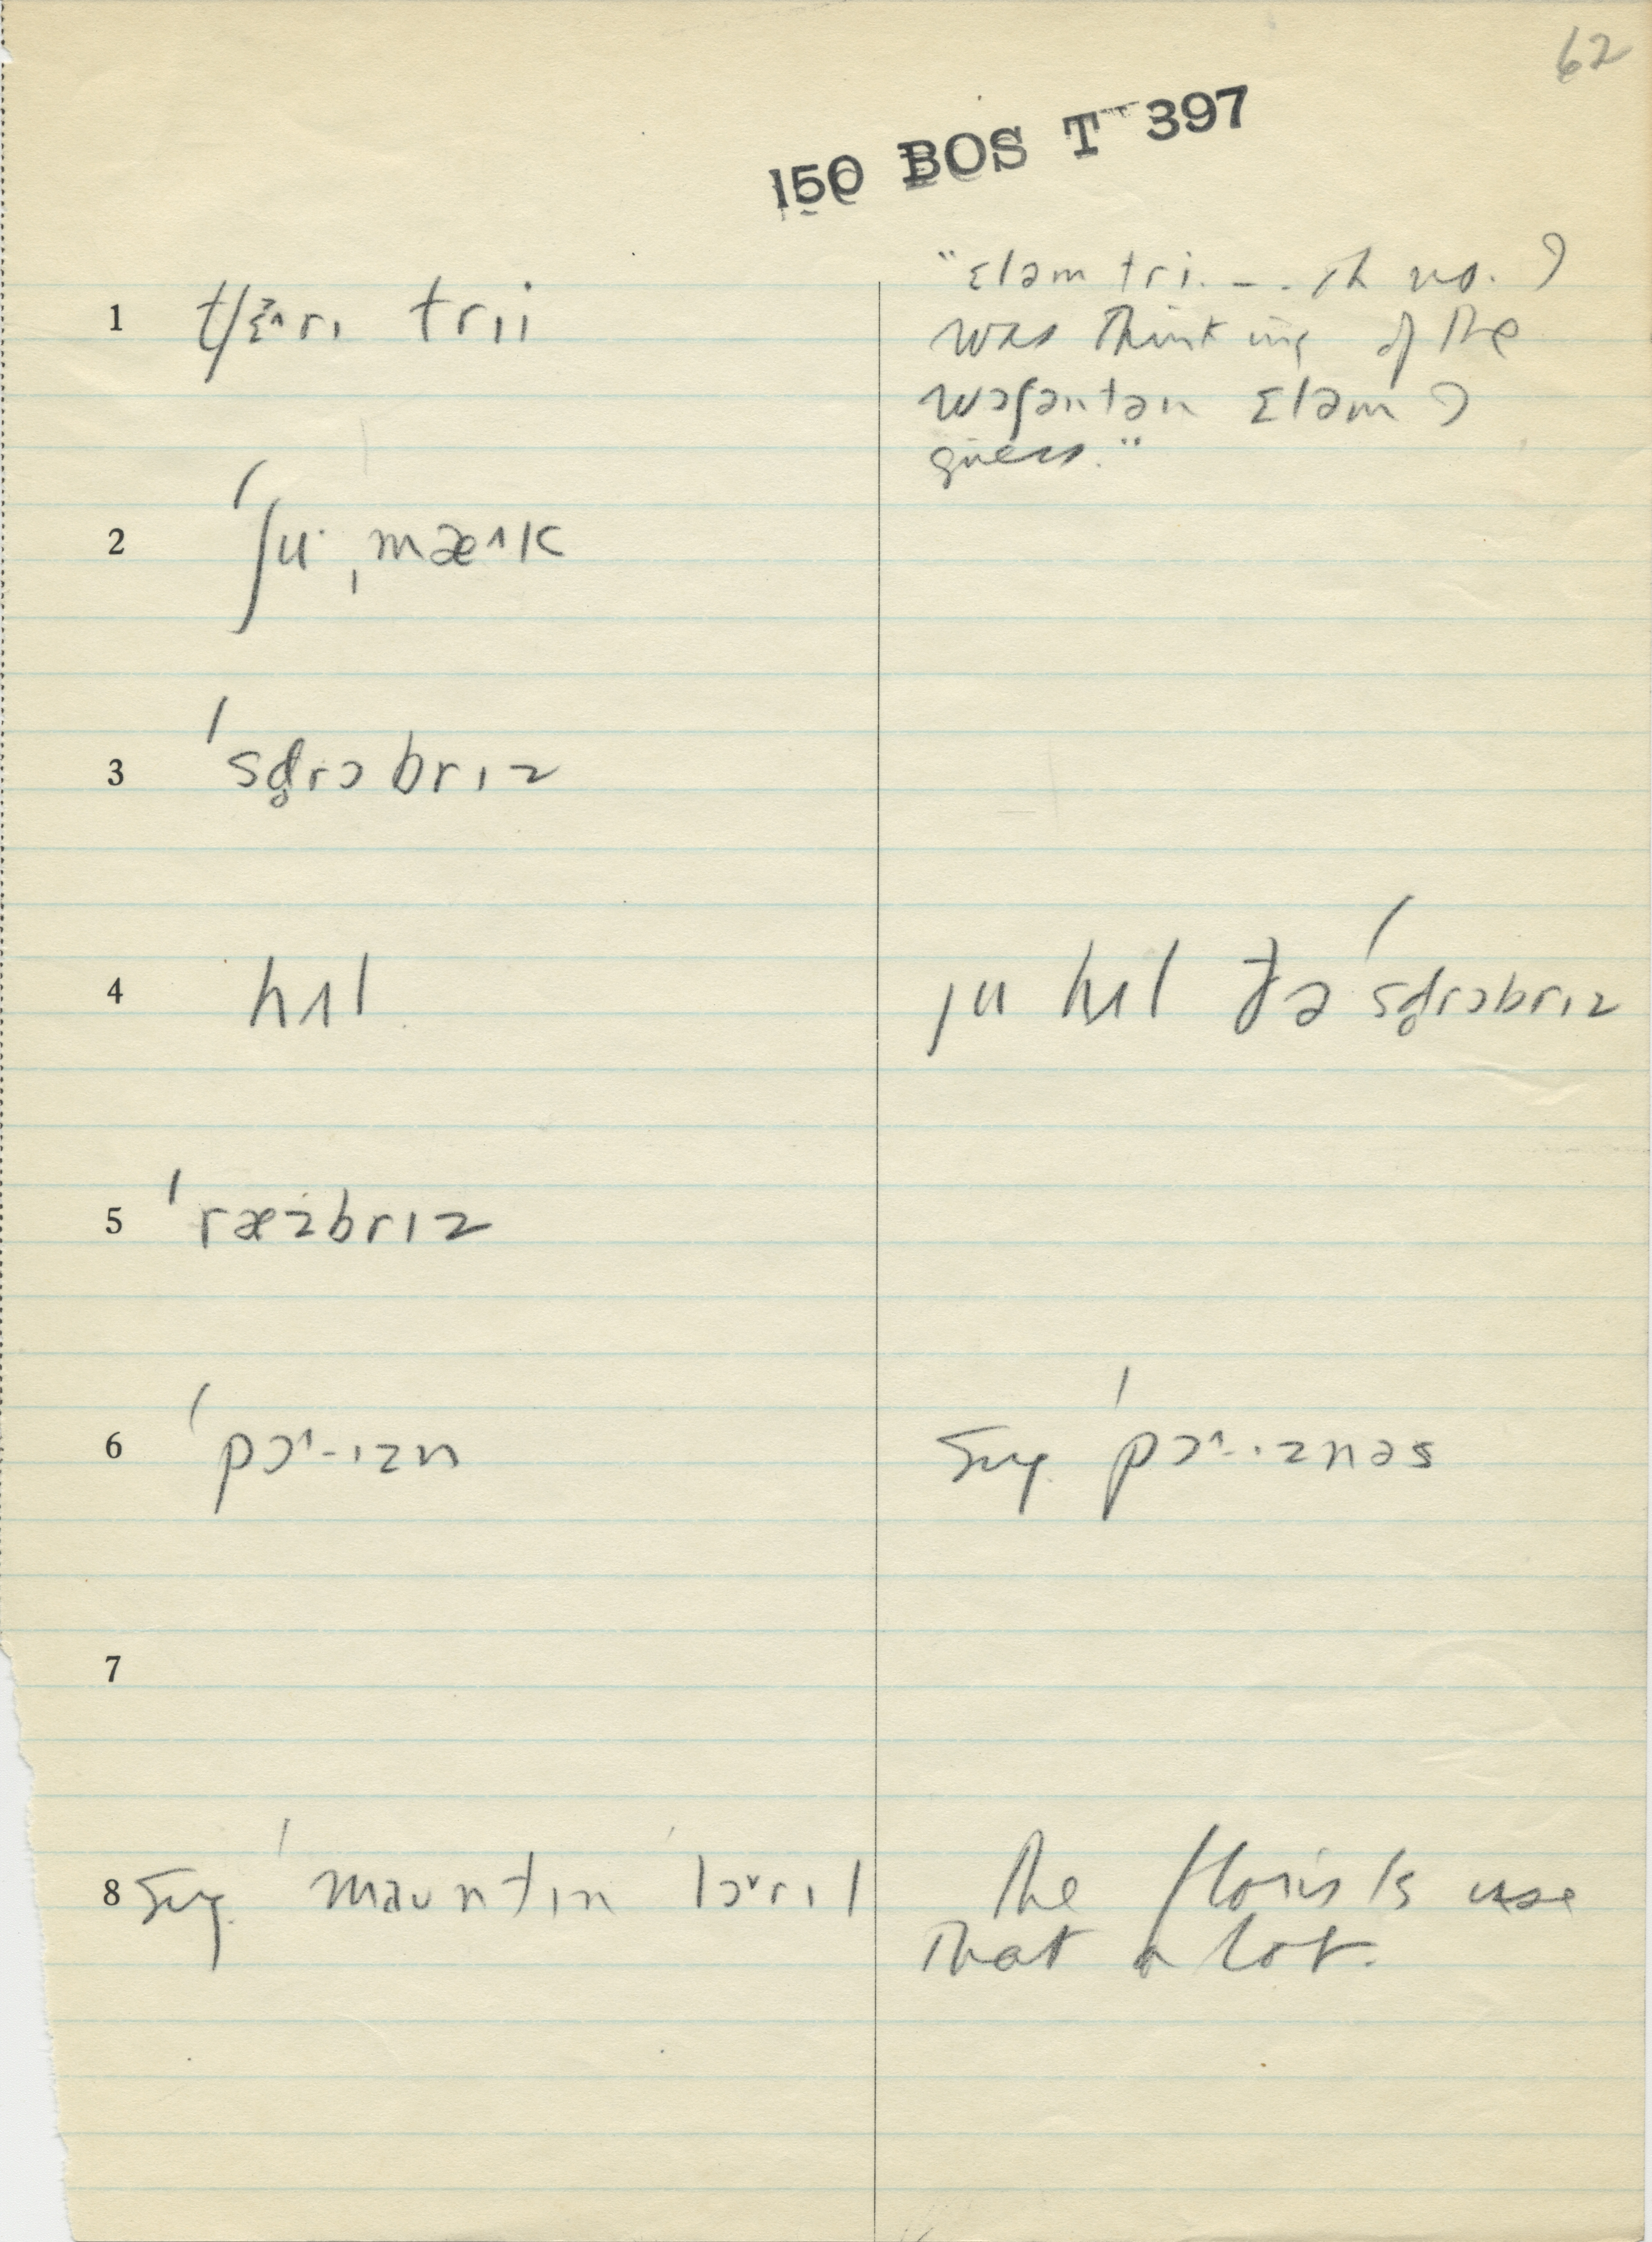 62
150 BOS T 397
1 tʃɛ^rɪ trɪi
"ɛləm tri. -. . oh no. I
was thinking of the
waʃəntən ɛləm I
guess."
2 ˈʃuˑˌmæ^k
3 ˈsd̥rɔbrɪz
4 hʌl
ju hʌl ðə ˈsd̥rɔbrɪz
5 ˈræzbrɪz
6 ˈpɔ^-ɪzn
Sug. ˈpɔ^-ɪznəs
7
8 Sug. ˈmauntɪn ˈlɔ˅rɪl
The florists use
that a lot.